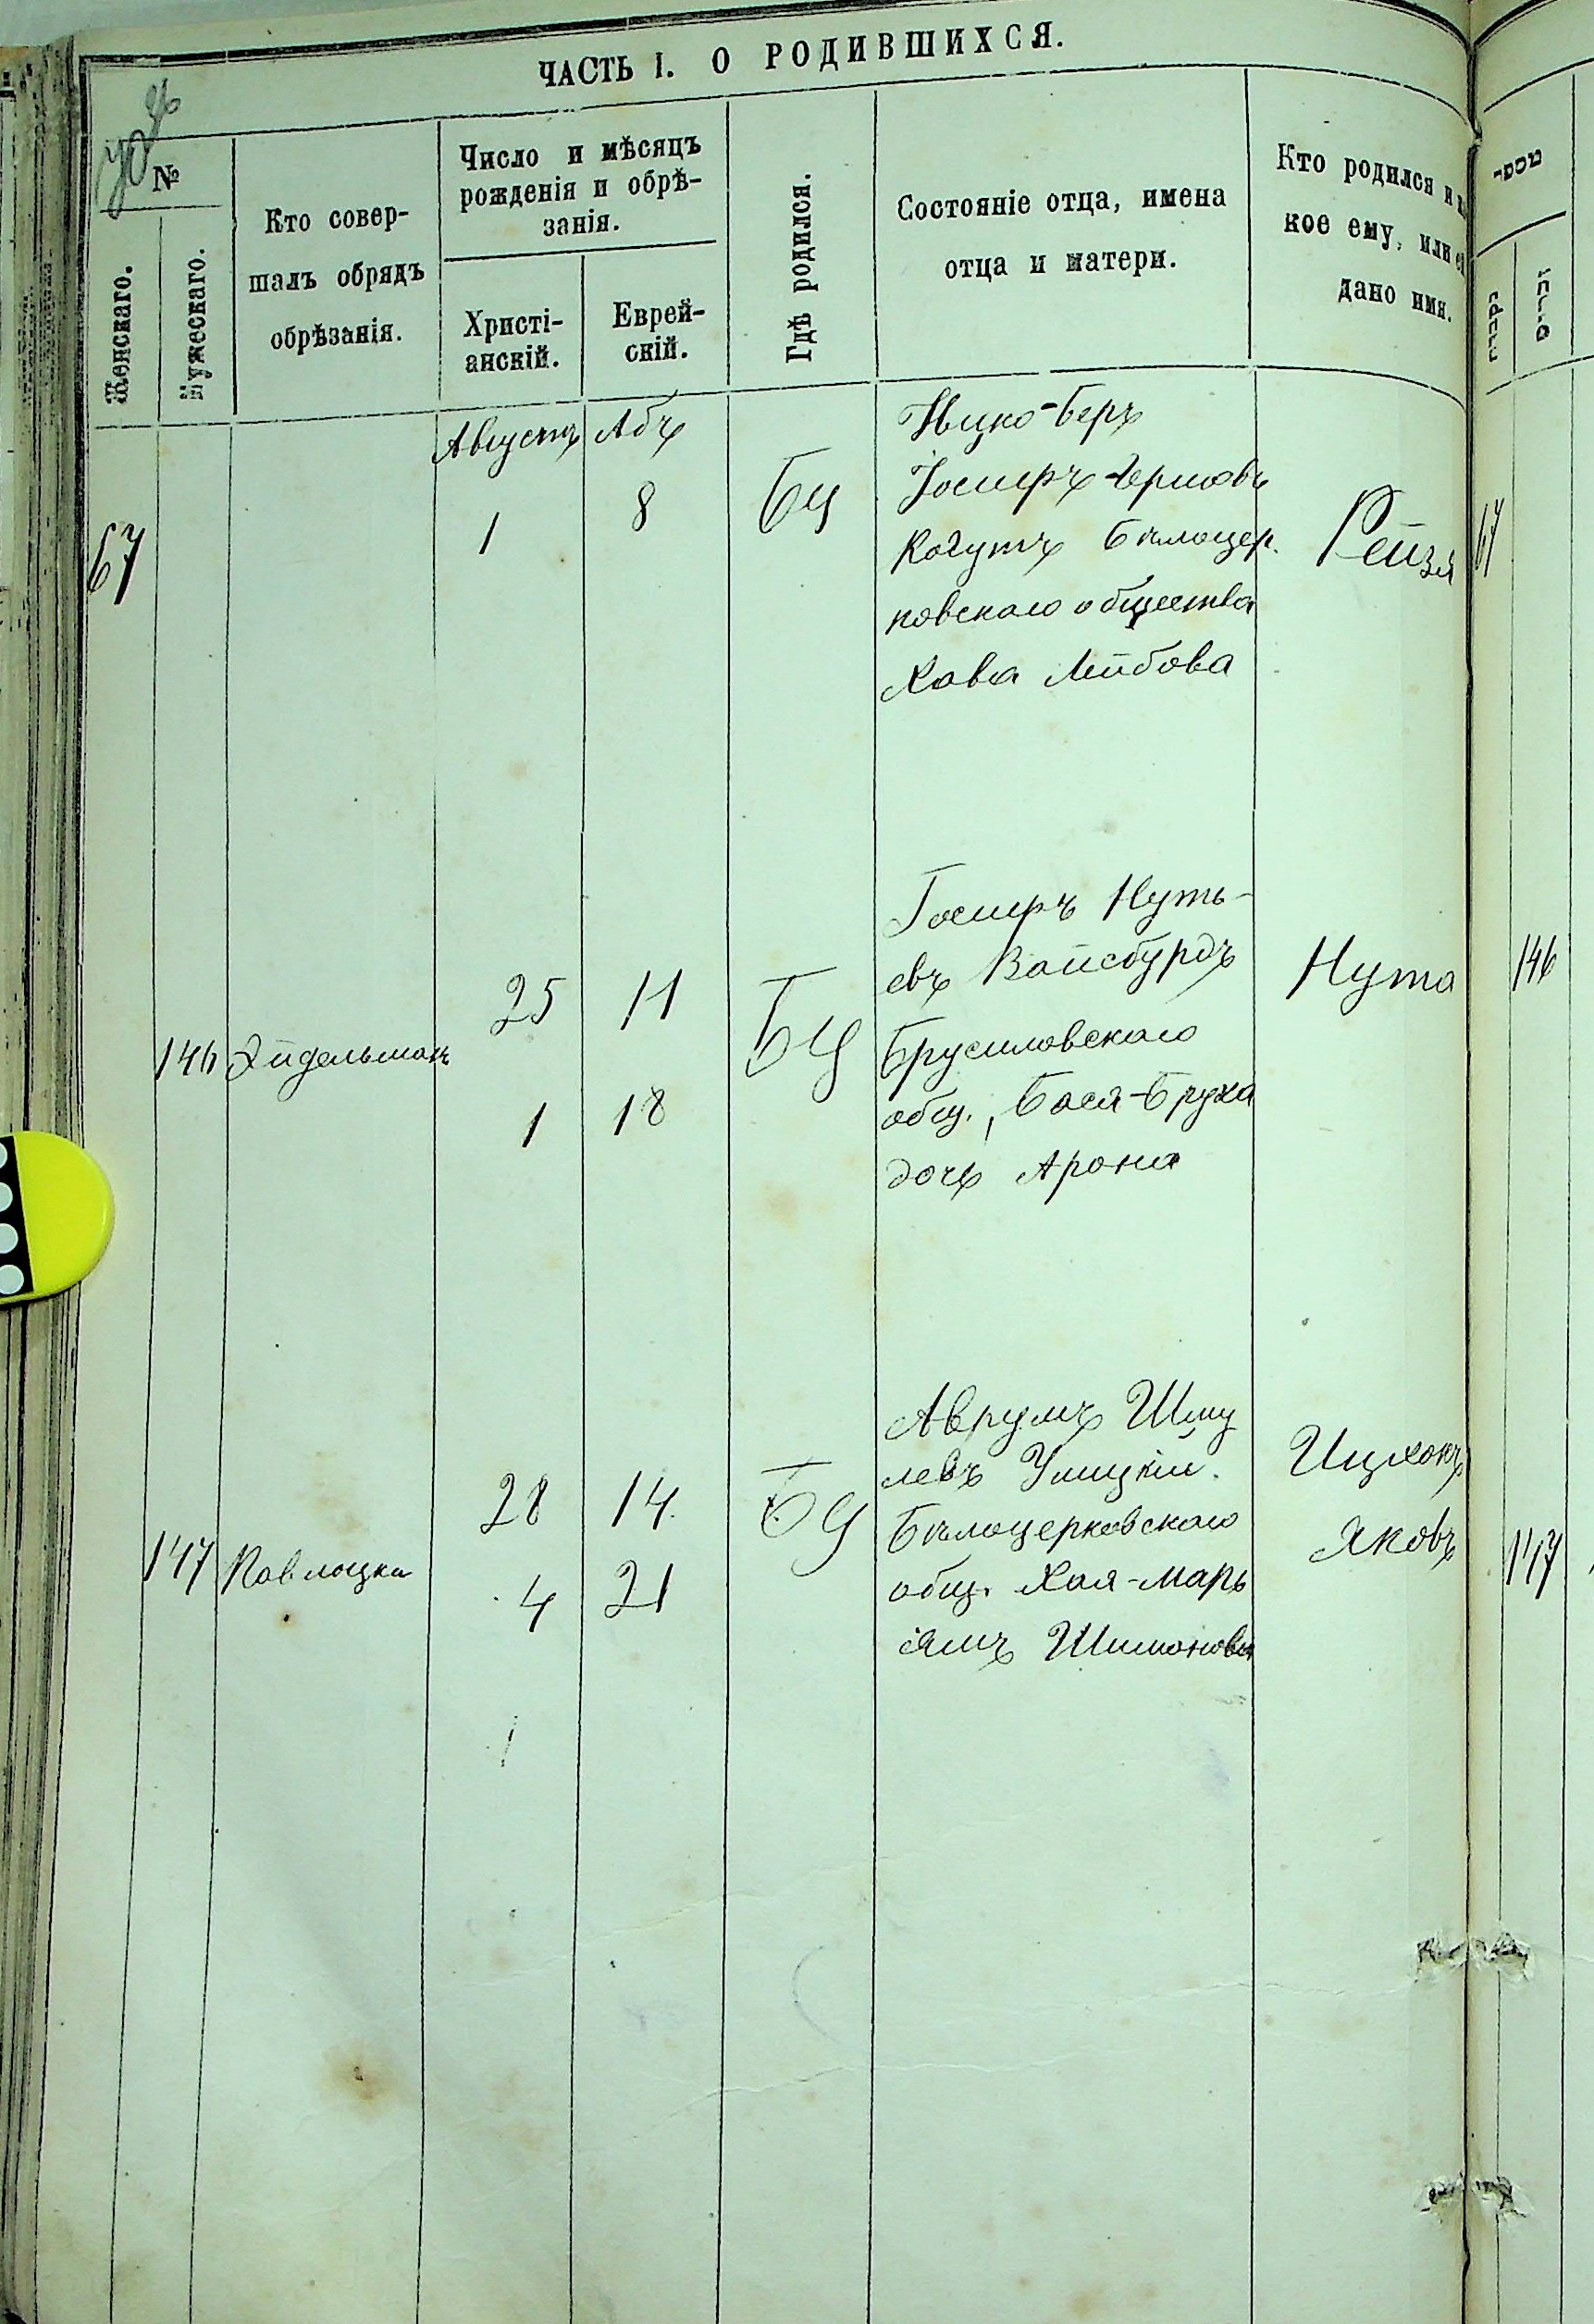 ЧАСТЬ I. О РОДИВШИХСЯ.
№
Женскаго.
Мужескаго.
Кто совер-
шалъ обрядъ
обрѣзанія.
Число и мѣсяцъ
рожденія и обрѣ-
занія.
Христі-
анскій.
Еврей-
скій.
Гдѣ родился.
Состояніе отца, имена
отца и матери.
Кто родился и
кое ему, или
дано имя.
מספר
נקבות
זכרים
Августъ Абъ
67
1
8
БЦ
Ицко-Беръ
Іосифъ-Герш
Когутъ Бѣлоцер.
ковскаго общества
Хава Лейбова
Рейзя
67
146 Эйдельманъ
25 11
1 18
БЦ
Іосифъ Нуть-
евъ Вайсбурдъ
Брусиловскаго
общ., Бася-Бруха
дочь Арона
Нута
146
147 Павлоцки
28 14.
4 21
БЦ
Аврумъ Шму
левъ Умицкій.
Бѣлоцерковскаго
общ. Хая-Марь
ямъ Шимонова
Ицхокъ
Яковъ
147